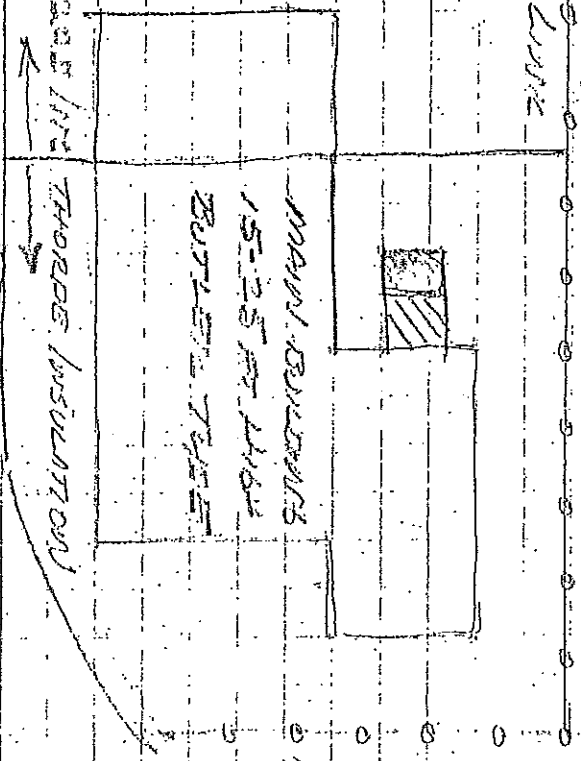 LINE
MAIN BUILDING
15-25 FT HIGH
BUTLER TYPE
THORPE INSULATION